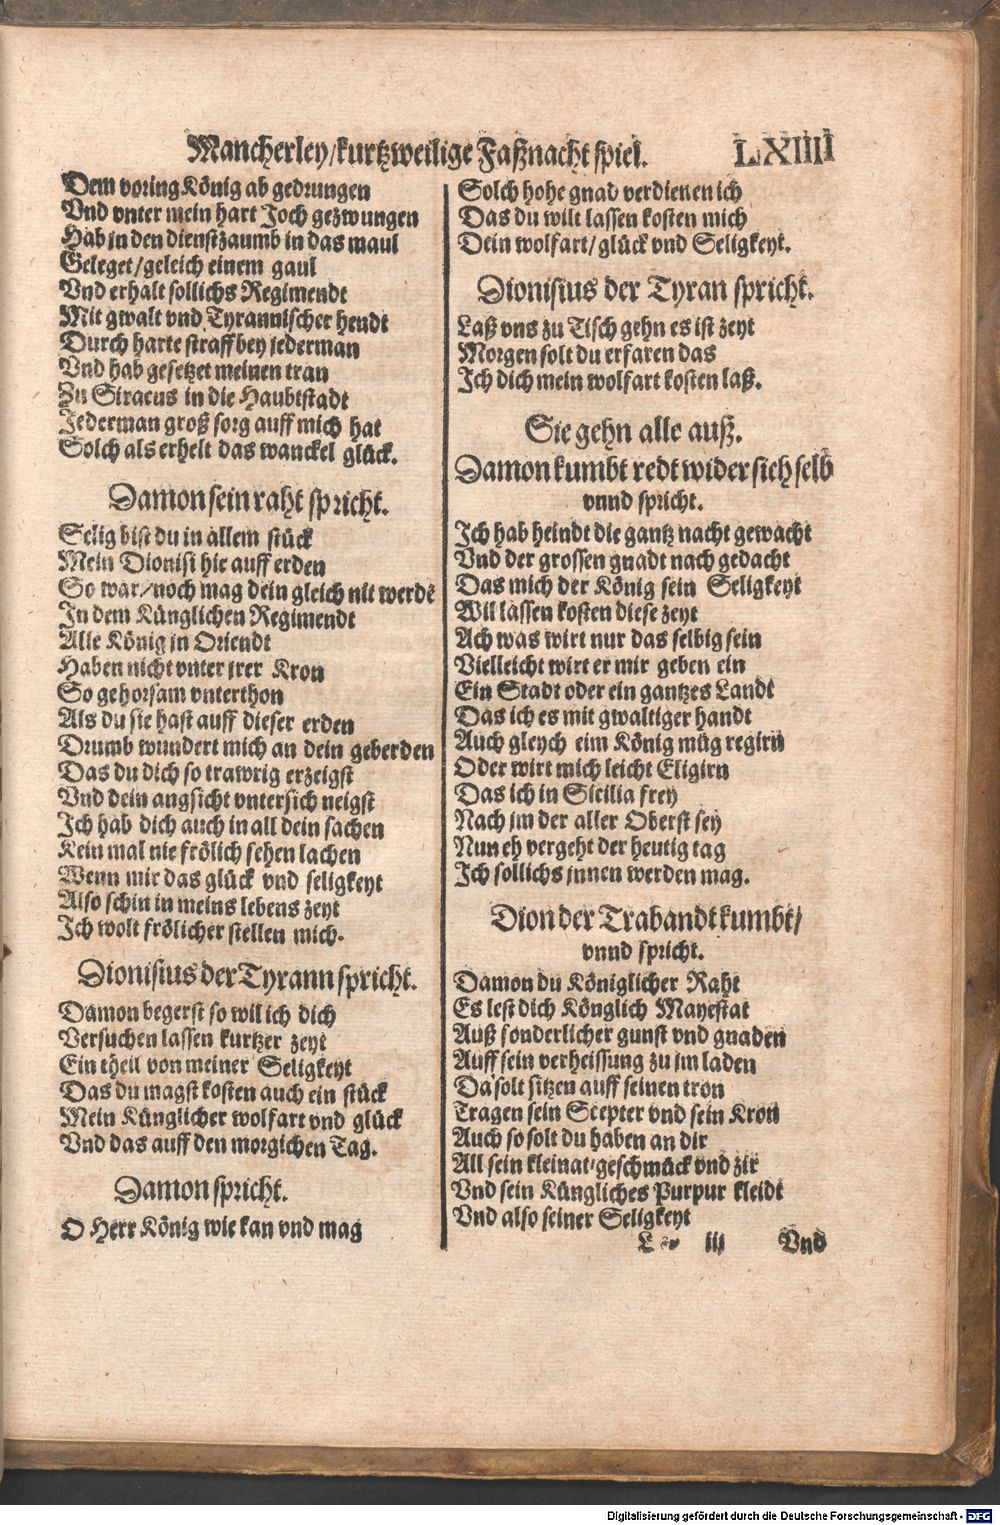 Mancherley/kurtzweilige Faßnacht spiel. LXIIII
Dem voring König ab gedrungen
Vnd vnter mein hart Joch gezwungen
Hab jn den dienstzaumb in das maul
Geleget/geleich einem gaul
Vnd erhalt sollichs Regimendt
Mit gwalt vnd Tyrannischer hendt
Durch harte straff bey jederman
Vnd hab gesetzet meinen tran
Zu Siracus in die Haubtstadt
Jederman groß sorg auff mich hat
Solch als erhelt das wanckel glück.
Damon sein raht spricht.
Selig bist du in allem stück
Mein Dionisi hie auff erden
So war/noch mag dein gleich nit werdē
In dem Künglichen Regimendt
Alle König jn Oriendt
Haben nicht vnter jrer Kron
So gehorsam vnterthon
Als du sie hast auff dieser erden
Drumb wundert mich an dein geberden
Das du dich so trawrig erzeigst
Vnd dein angsicht vntersich neigst
Ich hab dich auch in all dein sachen
Kein mal nie frölich sehen lachen
Wenn mir das glück vnd seligkeyt
Also schin in meins lebens zeyt
Ich wolt frölicher stellen mich.
Dionisius der Tyrann spricht.
Damon begerst so wil ich dich
Versuchen lassen kurtzer zeyt
Ein theil von meiner Seligkeyt
Das du magst kosten auch ein stück
Mein Künglicher wolfart vnd glück
Vnd das auff den morgichen Tag.
Damon spricht.
O Herr König wie kan vnd mag
Solch hohe gnad verdienen ich
Das du wilt lassen kosten mich
Dein wolfart/glück vnd Seligkeyt.
Dionisius der Tyran spricht.
Laß vns zu Tisch gehn es ist zeyt
Morgen solt du erfaren das
Ich dich mein wolfart kosten laß.
Sie gehn alle auß.
Damon kumbt redt wider sich selb
vnnd spricht.
Ich hab heindt die gantz nacht gewacht
Vnd der grossen gnadt nach gedacht
Das mich der König sein Seligkeyt
Wil lassen kosten diese zeyt
Ach was wirt nur das selbig sein
Vielleicht wirt er mir geben ein
Ein Stadt oder ein gantzes Landt
Das ich es mit gwaltiger handt
Auch gleych eim König müg regirn
Oder wirt mich leicht Eligirn
Das ich in Sicilia frey
Nach jm der aller Oberst sey
Nun eh vergeht der heutig tag
Ich sollichs jnnen werden mag.
Dion der Trabandt kumbt/
vnnd spricht.
Damon du Königlicher Raht
Es lest dich Könglich Mayestat
Auß sonderlicher gunst vnd gnaden
Auff sein verheissung zu jm laden
Da solt sitzen auff seinen tron
Tragen sein Scepter vnd sein Kron
Auch so solt du haben an dir
All sein kleinat/geschmück vnd zir
Vnd sein Küngliches Purpur kleidt
Vnd also seiner Seligkeyt
L iij Vnd
Digitalisierung gefördert durch die Deutsche Forschungsgemeinschaft - DFG